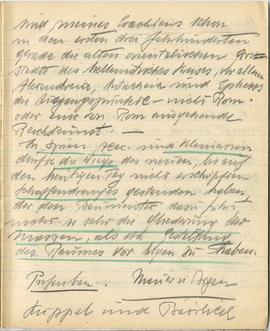 und meines Erachtens schon
in den ersten drei Jahrhunderten
gerade die alten orientalischen Gross
städte des hellenistischen Kreises, vor allem
Alexandreia, Antiocheia und Ephesos
die Ausgangspunkte — nicht Rom
oder eine von Rom ausgehende
Reichskunst. —
In Syrien und Kleinasien
dürfte die Wiege des neuen, bis auf
den heutigen Tag nicht erschöpften
Schaffensdranges gestanden haben
der den Baumeister dazu führt
nicht so sehr die Gliederung der
Massen, als die Gestaltung
des Raumes vor Augen zu haben.
Mauer u.
Kuppel und Basilica